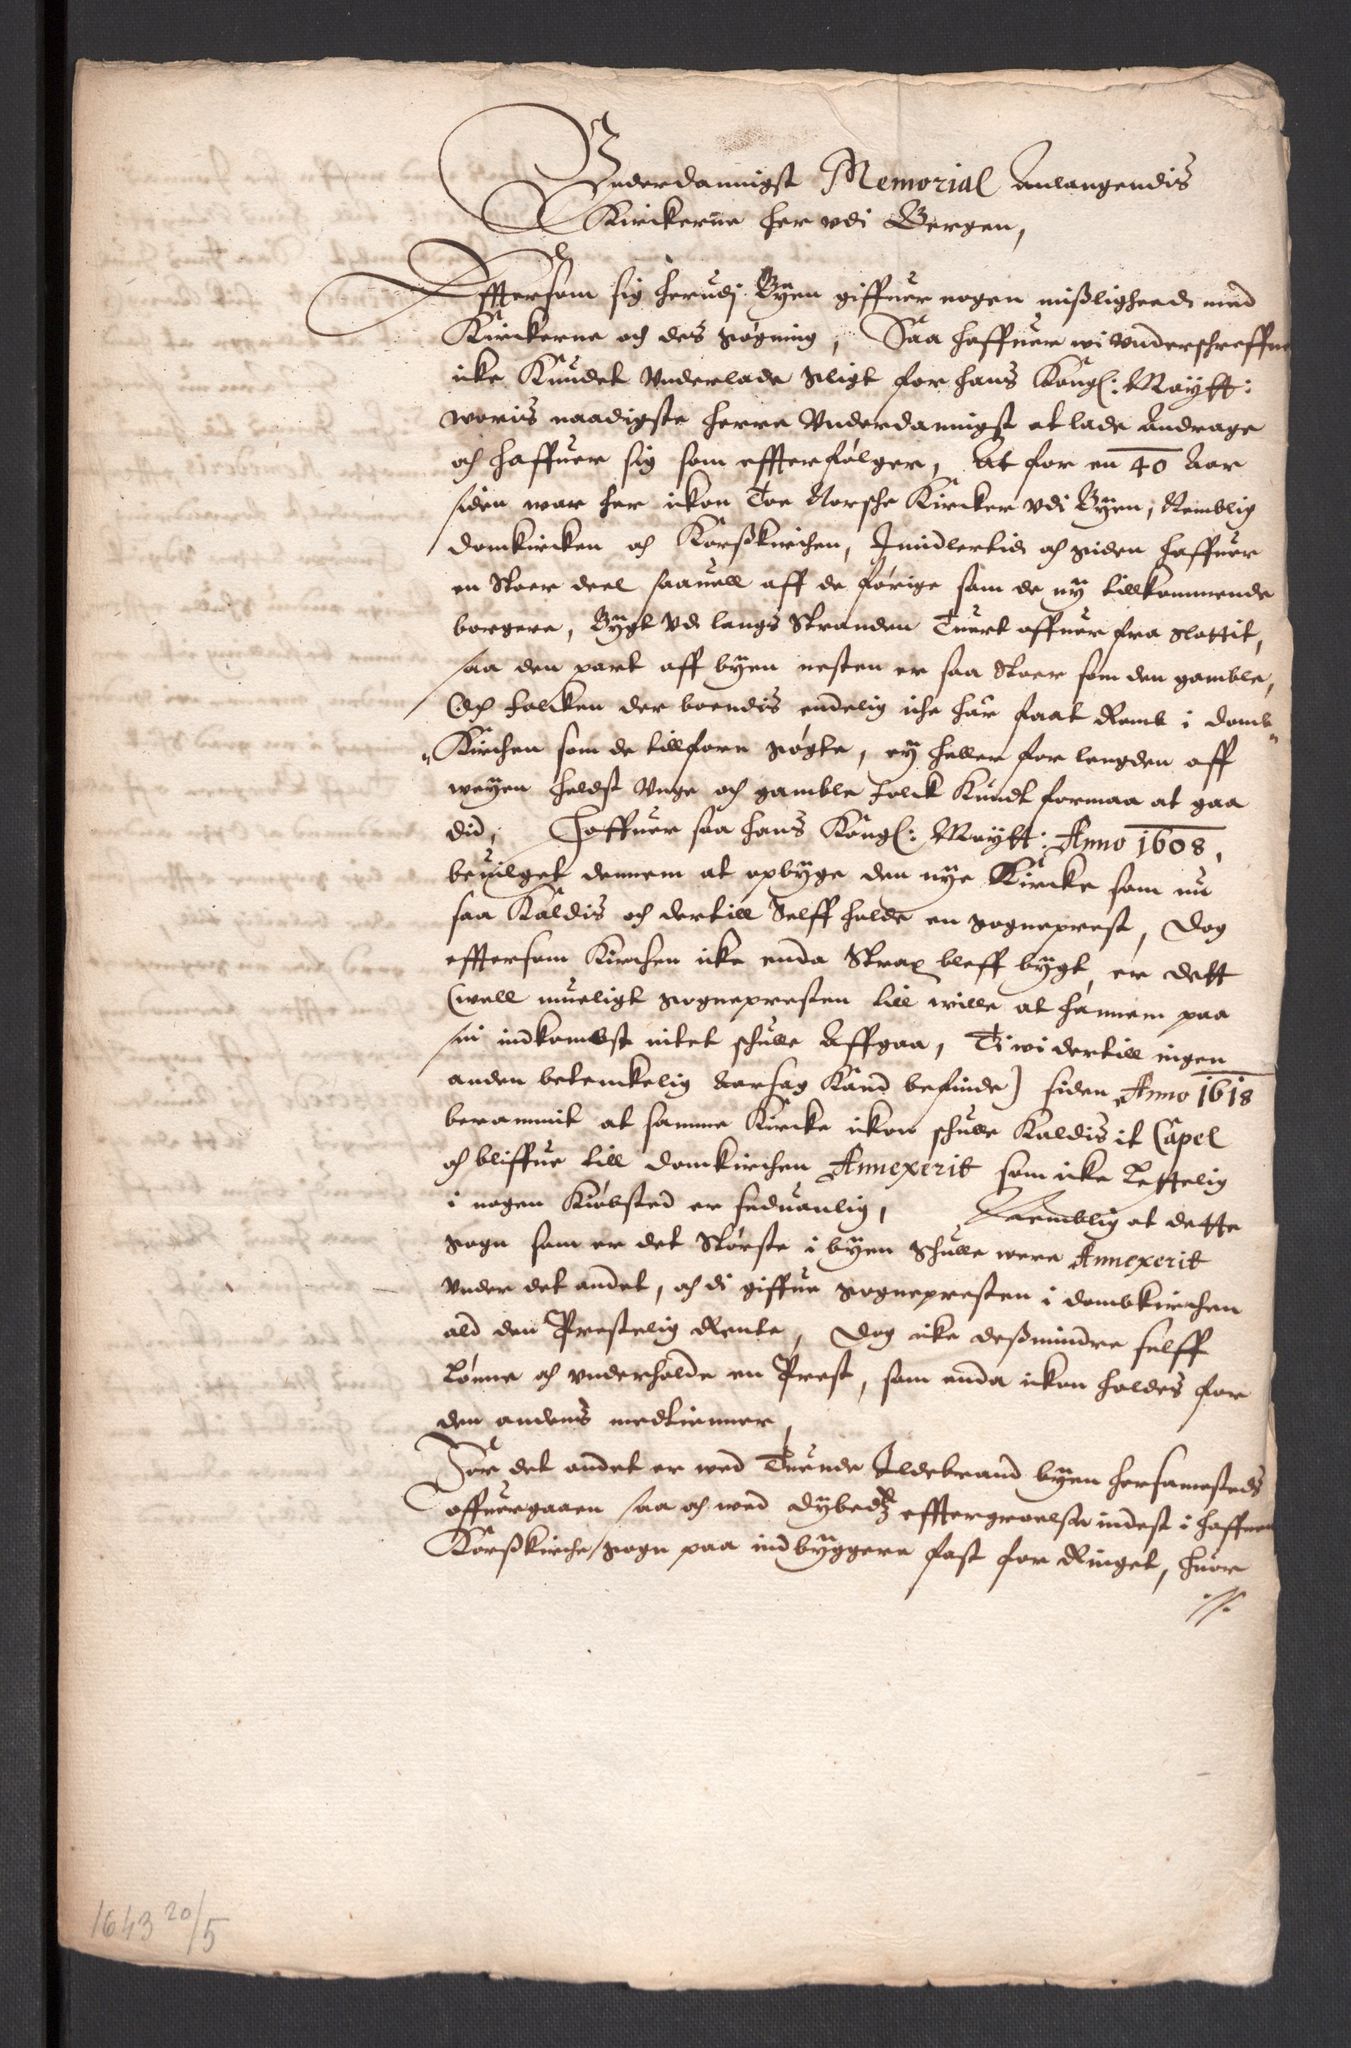 Vnderdannigst Memorial Anlangendis
Kirckerne her vdi Bergen,
Efftersom sig herudj Byen giffuer nogen mißligheed med
Kirckerne och des søgning, Saa haffuer wi Vnderschreffne
icke Kundet Vnderlade pligt for hans Kongl: Maytt:
woris naadigste herre Vnderdannigst at lade Andrage
och haffuer sig som effterfølger, At for en 40 Aar
siden war her ickon Toe Norsche Kircker vdi Byen, Nemblig
Domkircken och Korßkirchen, Imidlertid och siden haffuer
en Stoer deel saauell aff de förige som de ny tillkommende
borgere, Bygt Vd langs Stranden Tuert offuer fra slottit,
saa den part aff byen nesten er saa Stoer som den gamble,
Och folcken der boendis endelig iche har faat Remb i domb
"Kirchen som de tillforn søgte, ey heller for lengden aff
weyen heldst Vnge och gamble folck Kundt formaa at gaa
did, Haffuer saa hans Kongl: Maytt: Anno 1608,
beuilget dennem at opbyge den nye Kircke som nu
saa Kaldis och dertill Selff holde en sogneprest, Dog
efftersom Kirchen icke enda Strax bleff bygt, er dett
(well mueligt sognepresten till wille at hannem paa
sin indkombst intet schulle Affgaa, Ti wi dertill ingen
anden betenckelig Aarsag Kand befinde) siden Anno 1618
berammit at samme Kircke ickon schulle Kaldis it Capel
och bliffue till Domkirchen Annexerit som icke Lettelig
i nogen Kiøbsted er seduanlig, Naemblig at dette
sogn som er det Største i byen schulle were Annexerit
vnder det andet, och di giffue sognepresten i dombkirchen
ald den Prestelig Rente, Dog icke deßmindre selff
Lønne och vnderholde en Prest, som enda ickon holdes for
den andens medtienner,
For det andet er wed Tuende Ildebrand byen hersammesteds
offuergaaen saa och wed dybeds efftergroelse inderst i haffnen
Korßkirche sogn paa indbyggere fast for Ringet, huor
./.
1643 20/5